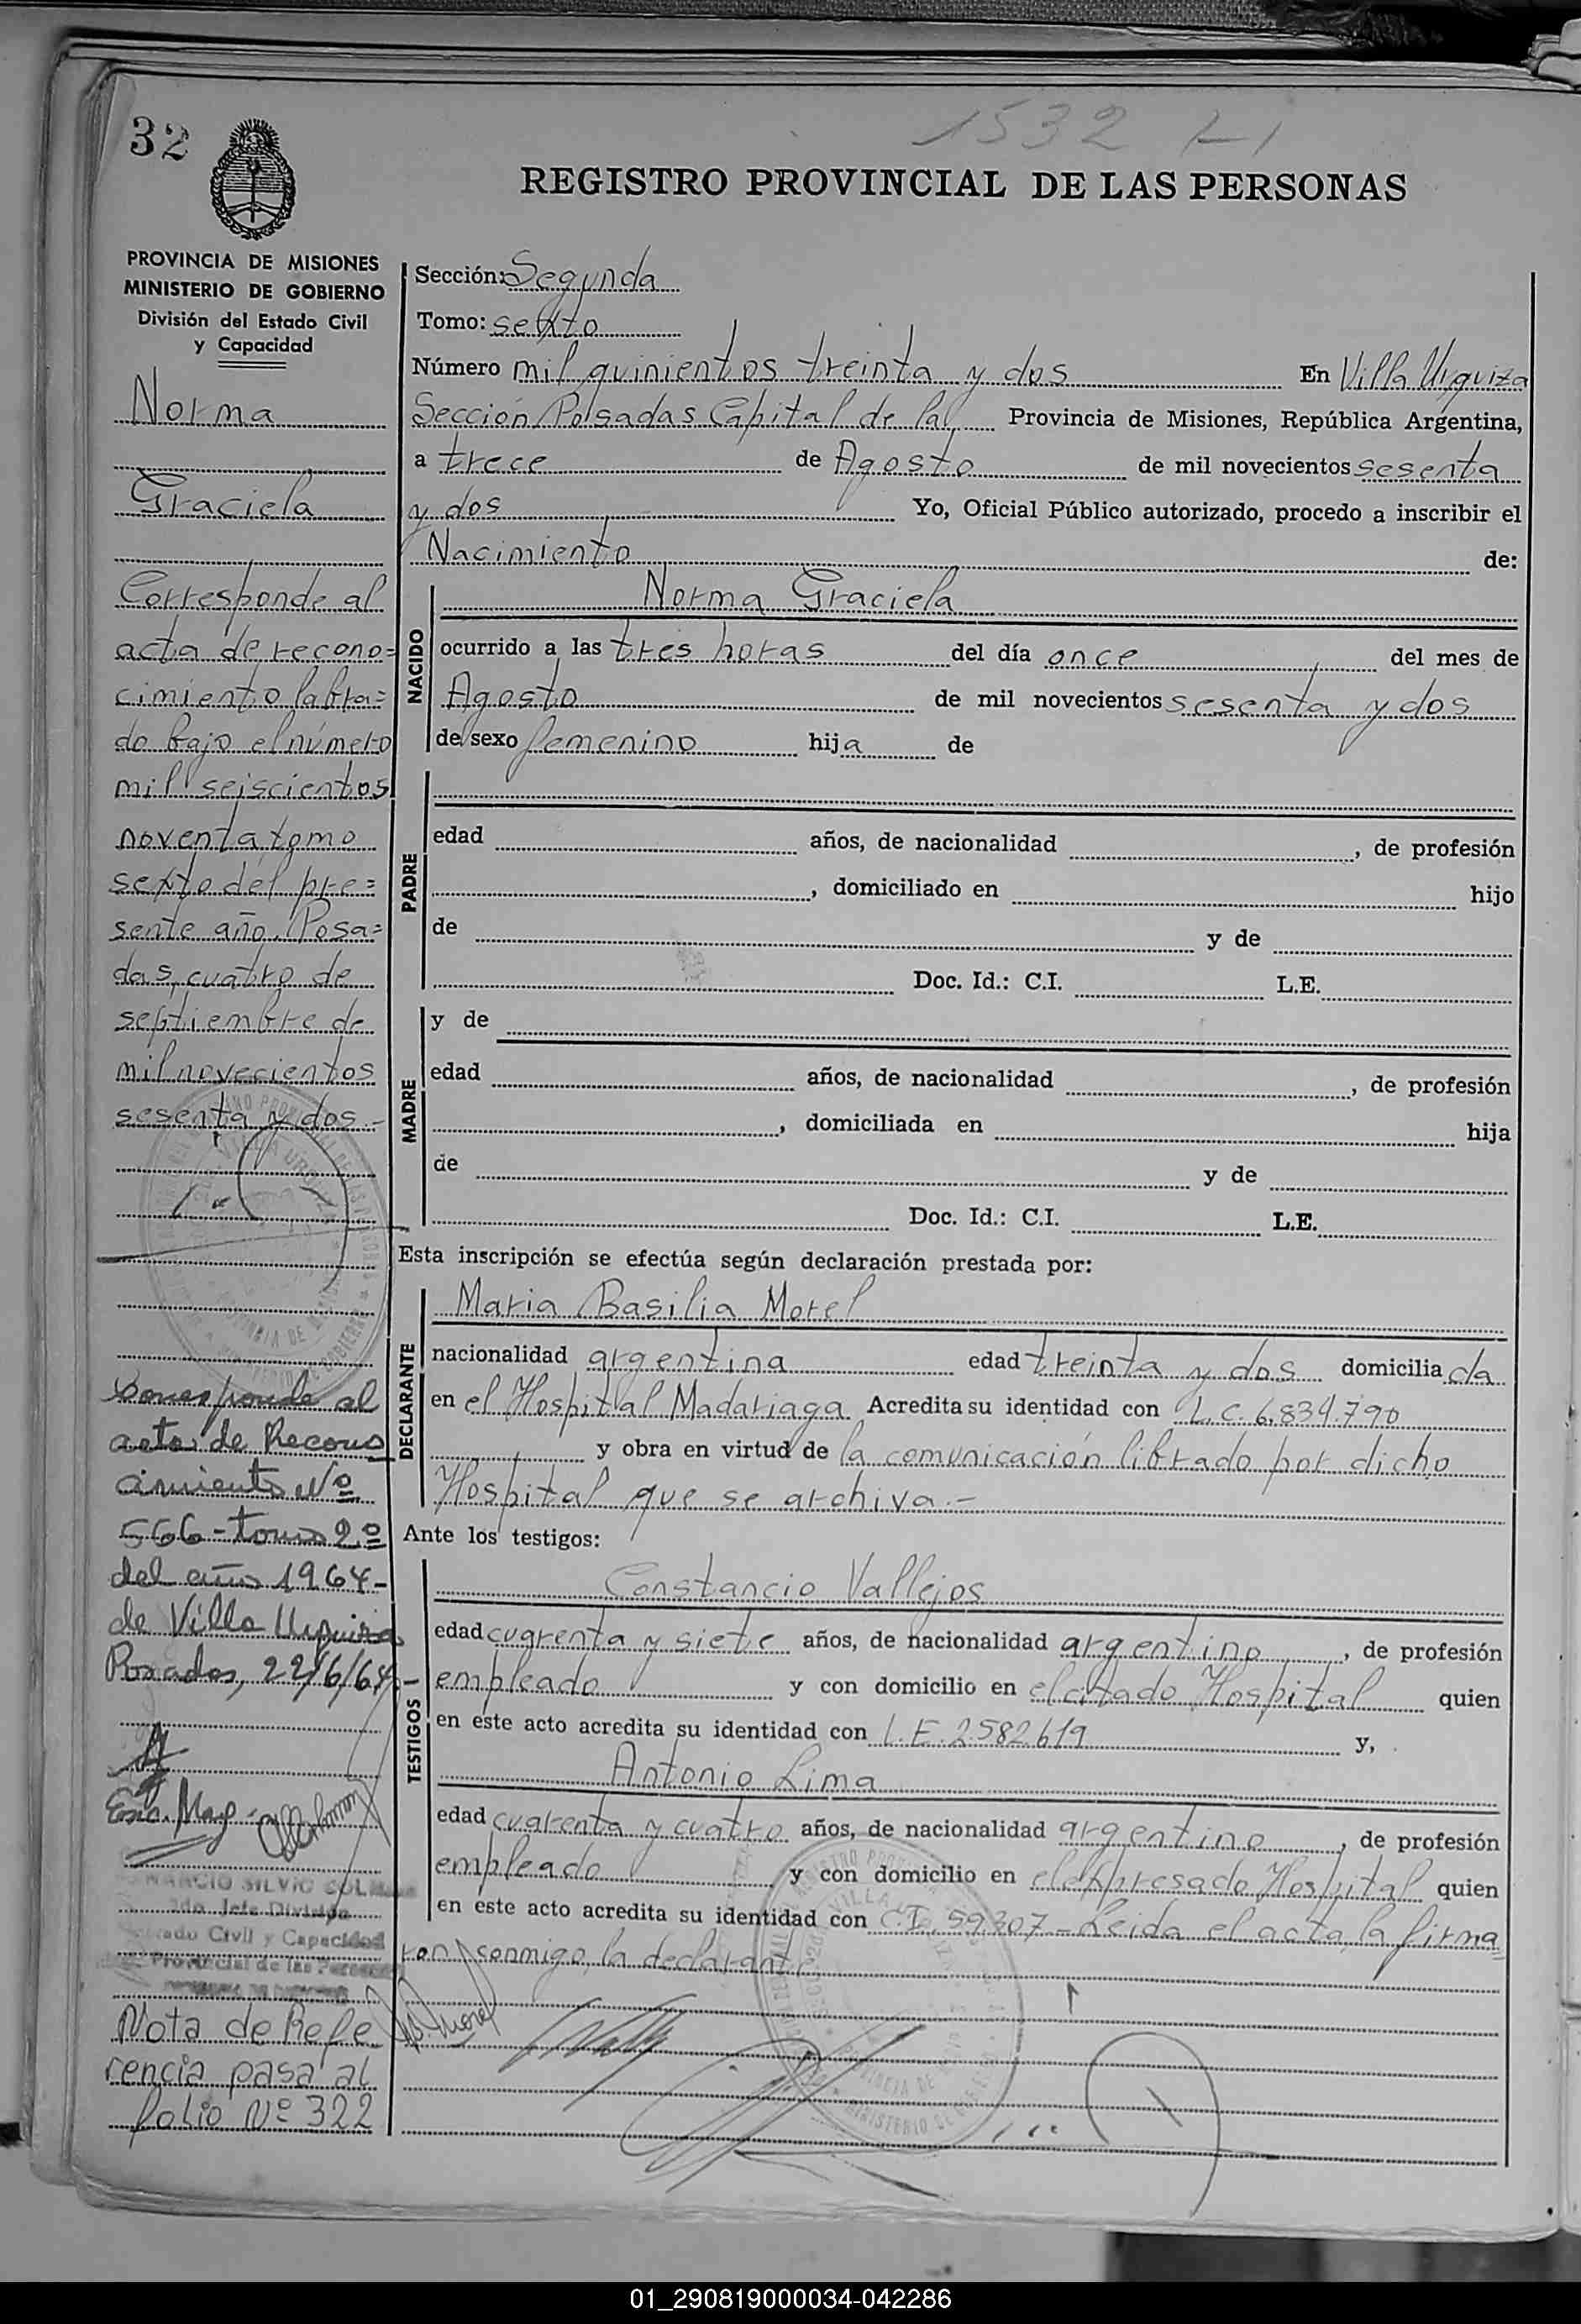 32
1532 L1
REGISTRO PROVINCIAL DE LAS PERSONAS
PROVINCIA DE MISIONES
MINISTERIO DE GOBIERNO
División del Estado Civil
y Capacidad
Norma
Graciela
Corresponde al
acta de recono=
cimiento labra=
do bajo el número
mil seiscientos
noventa, tomo
sexto del pre=
sente año, Posa=
das, cuatro de
septiembre de
mil novecientos
sesenta y dos.-
Corresponde al
acta de Recono
cimiento Nº
566 - tomo 2º
del año 1964 -
de Villa Urquiza
Posadas, 22/6/64
Enc. May.
2do. Jefe División
Estado Civil y Capacidad
Provincial de las Personas
Nota de Refe
rencia pasa al
folio Nº 322
Sección: Segunda
Tomo: sexto
Número mil quinientos treinta y dos En Villa Urquiza
Sección Posadas Capital de la Provincia de Misiones, República Argentina,
a trece de Agosto de mil novecientos sesenta
y dos Yo, Oficial Público autorizado, procedo a inscribir el
Nacimiento de:
NACIDO
Norma Graciela
ocurrido a las tres horas del día once del mes de
Agosto de mil novecientos sesenta y dos
de sexo femenino hija de
PADRE
edad años, de nacionalidad , de profesión
, domiciliado en hijo
de y de
Doc. Id.: C.I. L.E.
MADRE
y de
edad años, de nacionalidad , de profesión
, domiciliada en hija
de y de
Doc. Id.: C.I. L.E.
Esta inscripción se efectúa según declaración prestada por:
DECLARANTE
Maria Basilia Morel
nacionalidad argentina edad treinta y dos domiciliada
en el Hospital Madariaga Acredita su identidad con L.C. 6.834.790
y obra en virtud de la comunicación librado por dicho
Hospital que se archiva.-
Ante los testigos:
TESTIGOS
Constancio Vallejos
edad cuarenta y siete años, de nacionalidad argentino, de profesión
empleado y con domicilio en el citado Hospital quien
en este acto acredita su identidad con L.E. 2.582.619 y,
Antonio Lima
edad cuarenta y cuatro años, de nacionalidad argentino, de profesión
empleado y con domicilio en el expresado Hospital quien
en este acto acredita su identidad con C.I. 59.307 - Leida el acta, la firma=
ron conmigo, la declarante
M.B. Morel
01_290819000034-042286